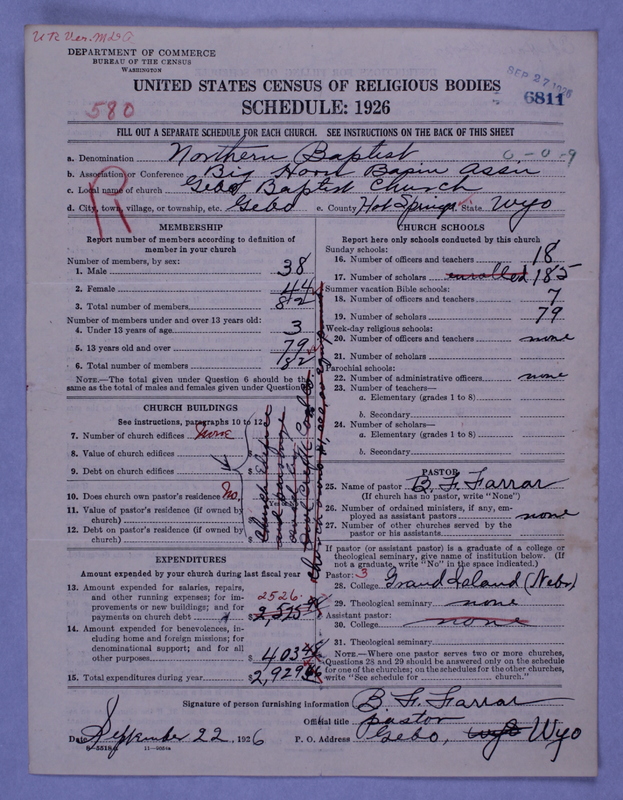 DEPARTMENT OF COMMERCE
BUREAU OF THE CENSUS
WASHINGTON
UNITED STATES CENSUS OF RELIGIOUS BODIES
SCHEDULE: 1926
SEP 27 1926
6811
580
FILL OUT A SEPARATE SCHEDULE FOR EACH CHURCH. SEE INSTRUCTIONS ON THE BACK OF THIS SHEET
a. Denomination Northern Baptist 0-0-9
b. Association or Conference Big Horn Assn
c. Local name of church Gebo Baptist Church
d. City, town, village, or township, etc. Gebo e. County Hot Springs State Wyo
R
MEMBERSHIP
Report number of members according to definition of member in your church
Number of members, by sex:
1. Male 38
2. Female 44
3. Total number of members 82
Number of members under and over 13 years old:
4. Under 13 years of age 3
5. 13 years old and over 79
6. Total number of members 82
NOTE.—The total given under Question 6 should be the same as the total of males and females given under Question
CHURCH BUILDINGS
See instructions, paragraphs 10 to 12
7. Number of church edifices None
8. Value of church edifices $
9. Debt on church edifices $
10. Does church own pastor's residence No
11. Value of pastor's residence (if owned by church) $
12. Debt on pastor's residence (if owned by church) $
Church Edifice
and parsonage
owned by
Coal Co.
EXPENDITURES
Amount expended by your church during last fiscal year
13. Amount expended for salaries, repairs, and other running expenses; for improvements or new buildings; and for payments on church debt 2526. $
14. Amount expended for benevolences, including home and foreign missions; for denominational support; and for all other purposes $ 403
15. Total expenditures during year $ 2,929
CHURCH SCHOOLS
Report here only schools conducted by this church
Sunday schools:
16. Number of officers and teachers 18
17. Number of scholars enrolled 185
Summer vacation Bible schools:
18. Number of officers and teachers 7
19. Number of scholars 79
Week-day religious schools:
20. Number of officers and teachers none
21. Number of scholars
Parochial schools:
22. Number of administrative officers none
23. Number of teachers—
a. Elementary (grades 1 to 8)
b. Secondary
24. Number of scholars—
a. Elementary (grades 1 to 8)
b. Secondary
PASTOR
25. Name of pastor B. F. Farrar
(If church has no pastor, write "None")
26. Number of ordained ministers, if any, employed as assistant pastors none
27. Number of other churches served by the pastor or his assistants
If pastor (or assistant pastor) is a graduate of a college or theological seminary, give name of institution below. (If not a graduate, write "No" in the space indicated.)
Pastor: 3
28. College Grand Island (Nebr)
29. Theological seminary none
Assistant pastor:
30. College none
31. Theological seminary
NOTE.—Where one pastor serves two or more churches, Questions 28 and 29 should be answered only on the schedule for one of the churches; on the schedules for the other churches, write "See schedule for church."
Signature of person furnishing information B. F. Farrar
Official title pastor
Date September 22, 1926 P. O. Address Gebo, Wyo Wyo